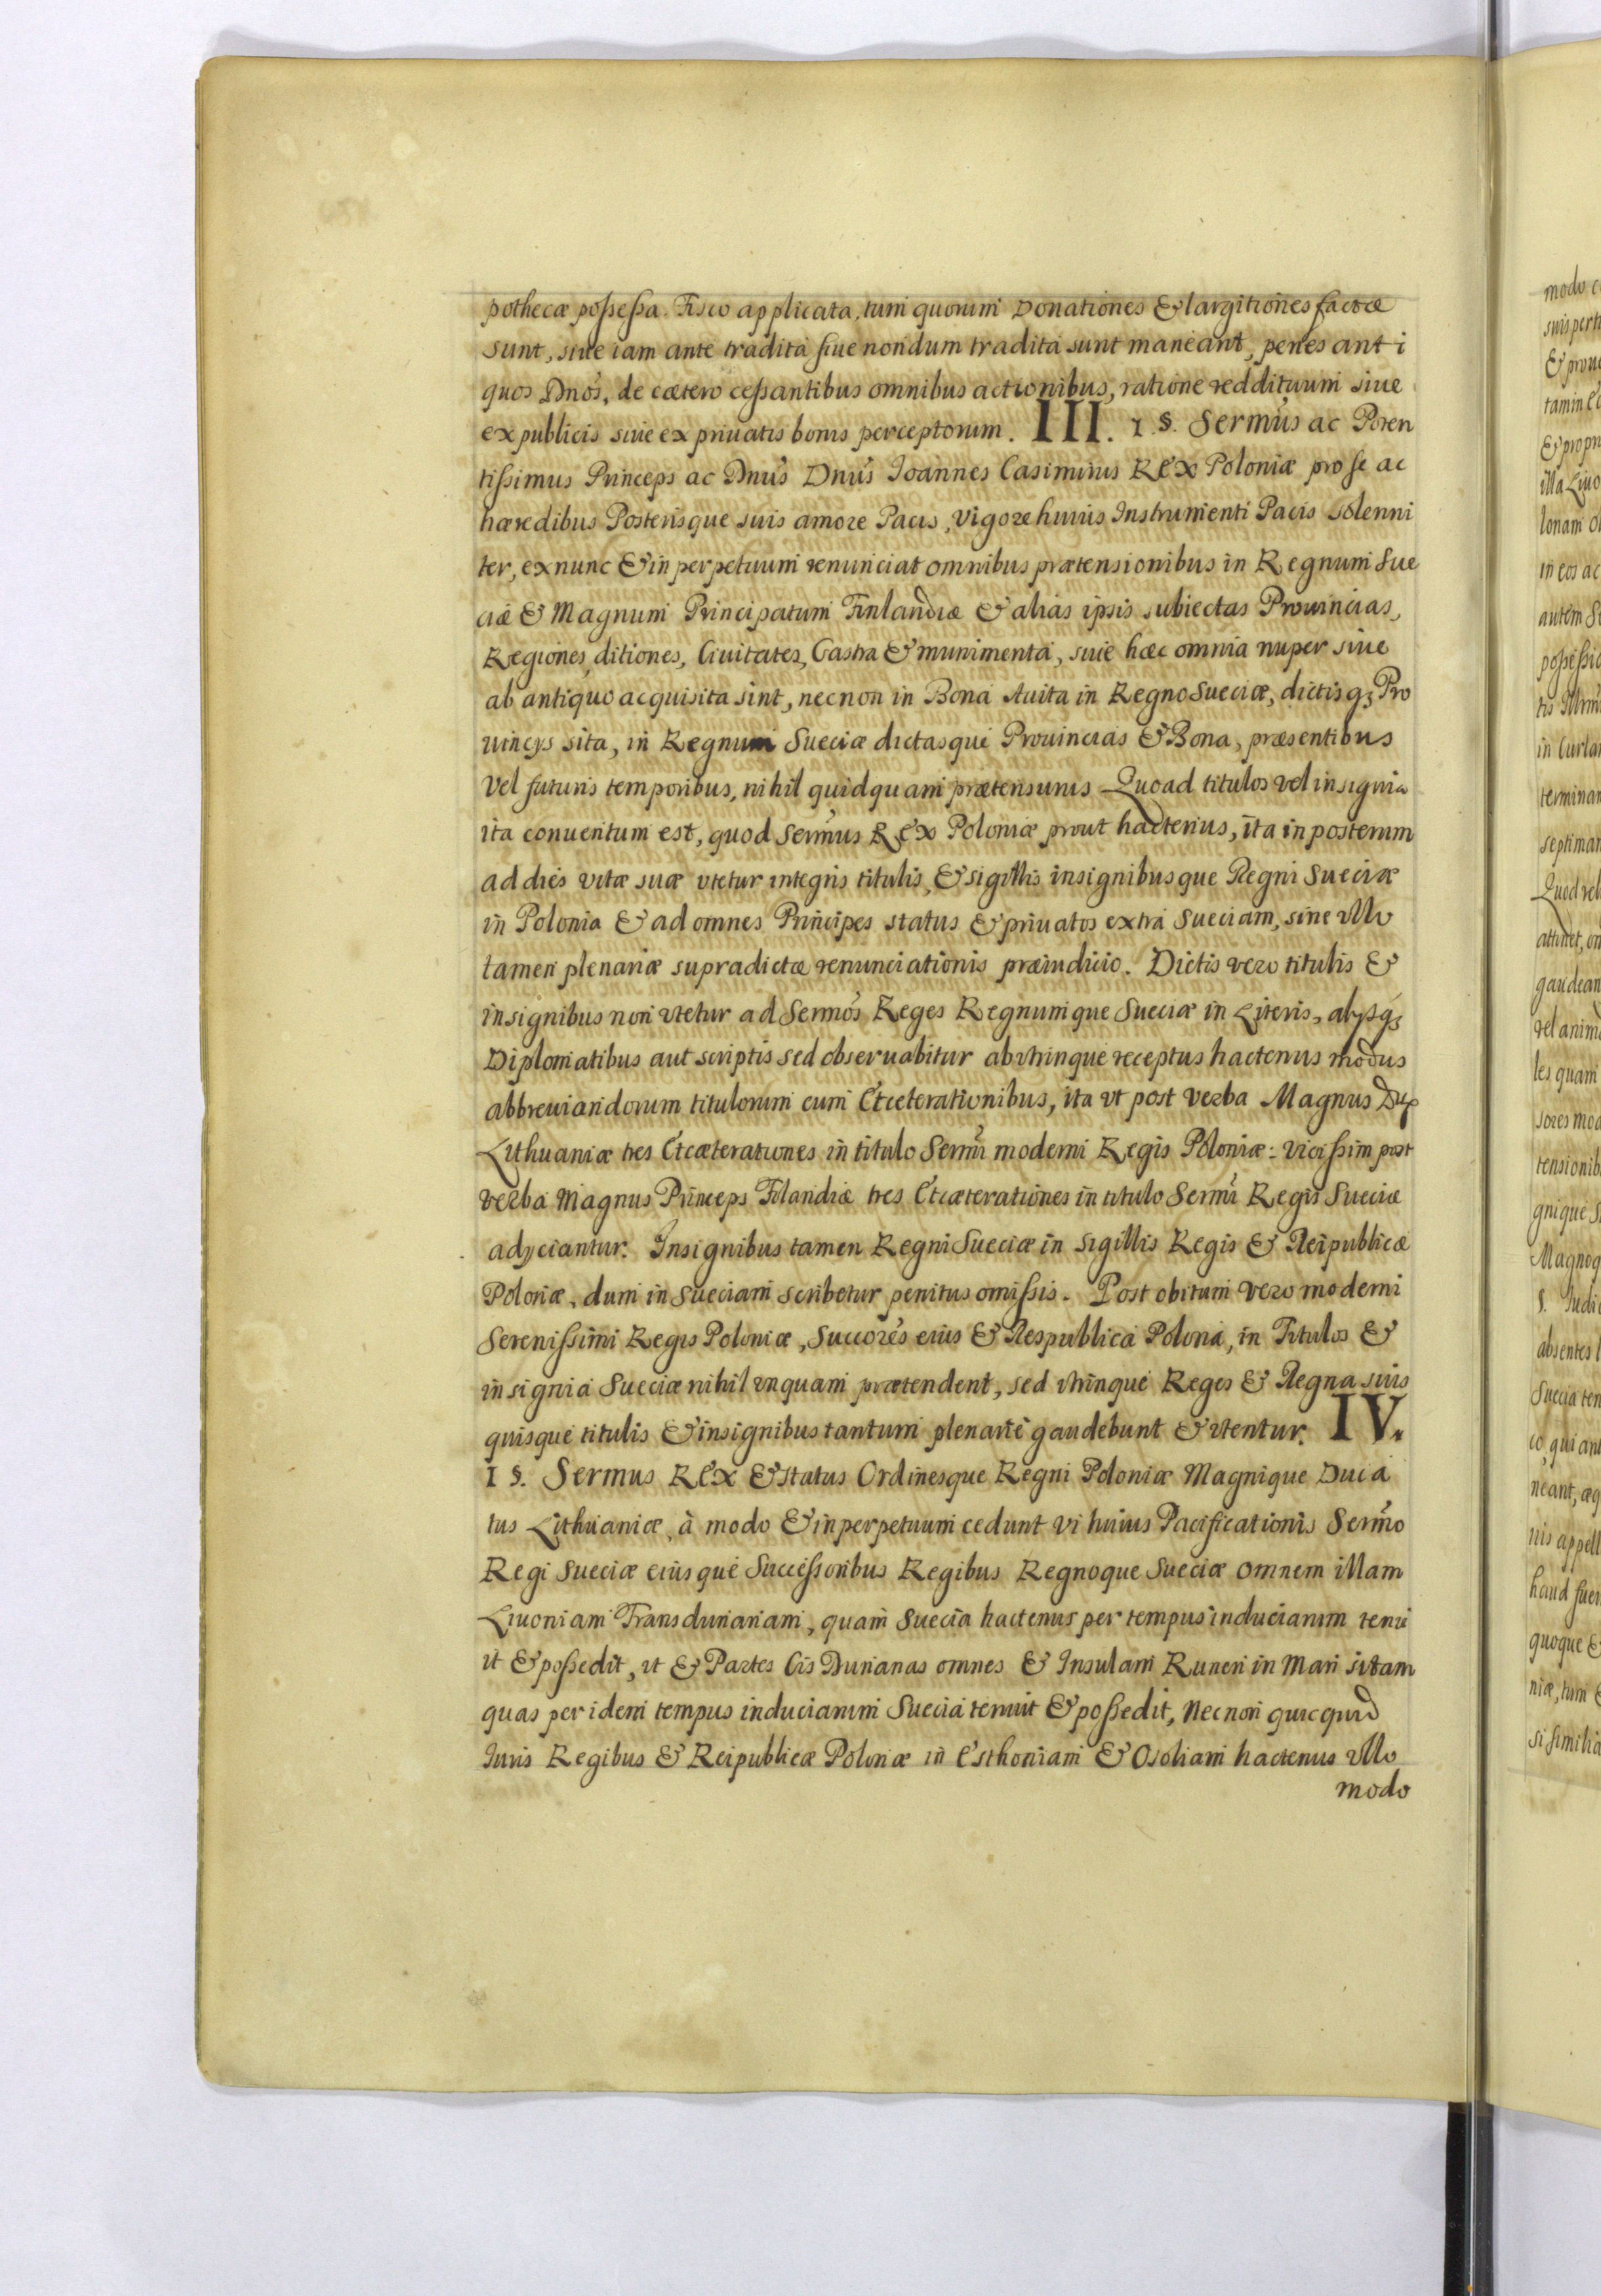 pothecæ possessa. Fisco applicata, tum quorum Donationes & largitiones factæ
sunt, siue iam ante tradita siue nondum tradita sunt maneant, penes anti
quos Dnos, de cætero cessantibus omnibus actionibus, ratione reddituum siue
ex publicis siue ex priuatis bonis perceptorum. III. 1. §. Sermus ac Poten
tissimus Princeps ac Dnus Dnus Ioannes Casimirus REX Poloniæ pro se ac
hæredibus Posterisque suis amore Pacis, vigore huius Instrumenti Pacis solenni
ter, ex nunc & in perpetuum renunciat omnibus prætensionibus in Regnum Sue
ciæ & Magnum Principatum Finlandiæ & alias ipsis subiectas Prouincias,
Regiones, ditiones, Ciuitates, Castra & munimenta, siue hæc omnia nuper siue
ab antiquo acquisita sint, nec non in Bona Auita in Regno Sueciæ, dictisq; Pro
uincÿs sita, in Regnum Sueciæ dictasque Prouincias & Bona, præsentibus
vel futuris temporibus, nihil quidquam prætensurus Quoad titulos vel insignia
ita conuentum est, quod Sermus REX Poloniæ prout hactenus, ita in posterum
ad dies vitæ suæ vtetur integris titulis, & sigillis insignibusque Regni Sueciæ
in Polonia & ad omnes Principes status & priuatos extra Sueciam, sine vllo
tamen plenariæ supradictæ renunciationis præiudicio. Dictis vero titulis &
insignibus non vtetur ad Sermos Reges Regnumque Sueciæ in Literis, alÿsq;
Diplomatibus aut scriptis sed obseruabitur ab vtrinque receptus hactenus modus
abbreuiandorum titulorum cum Etceterationibus, ita vt post verba Magnus Dux
Lithuaniæ tres Etcæterationes in titulo Sermi moderni Regis Poloniæ: vicissim post
verba Magnus Princeps Filandiæ tres Etcæterationes in titulo Sermi Regis Sueciæ
adÿciantur. Insignibus tamen Regni Sueciæ in sigillis Regis & Reipublicæ
Poloniæ, dum in Sueciam scribetur penitus omissis. Post obitum vero moderni
Serenissimi Regis Poloniæ, Succores eius & Respublica Polona, in Titulos &
insignia Sueciæ nihil vnquam prætendent, sed vtrinque Reges & Regna suis
quisque titulis & insignibus tantum plenarie gaudebunt & vtentur. IV.
1 §. Sermus REX & status Ordinesque Regni Poloniæ Magnique Duca
tus Lithuaniæ, à modo & in perpetuum cedunt vi huius Pacificationis Sermo
Regi Sueciæ eiusque Successoribus Regibus Regnoque Sueciæ omnem illam
Liuoniam Transdunanam, quam Suecia hactenus per tempus induciarum tenu
it & possedit, vt & Partes Cis Dunanas omnes & Insulam Runen in Mari sitam
quas per idem tempus induciarum Suecia tenuit & possedit, Nec non quicquid
Iuris Regibus & Reipublicæ Poloniæ in Esthoniam & Osoliam hactenus vllo
modo